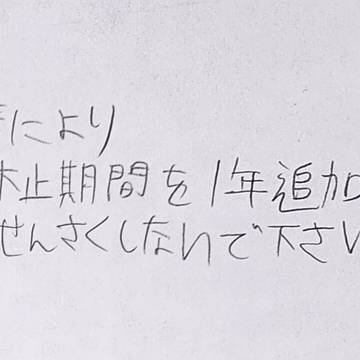 により
休止期間を1年追加
せんさくしないで下さい